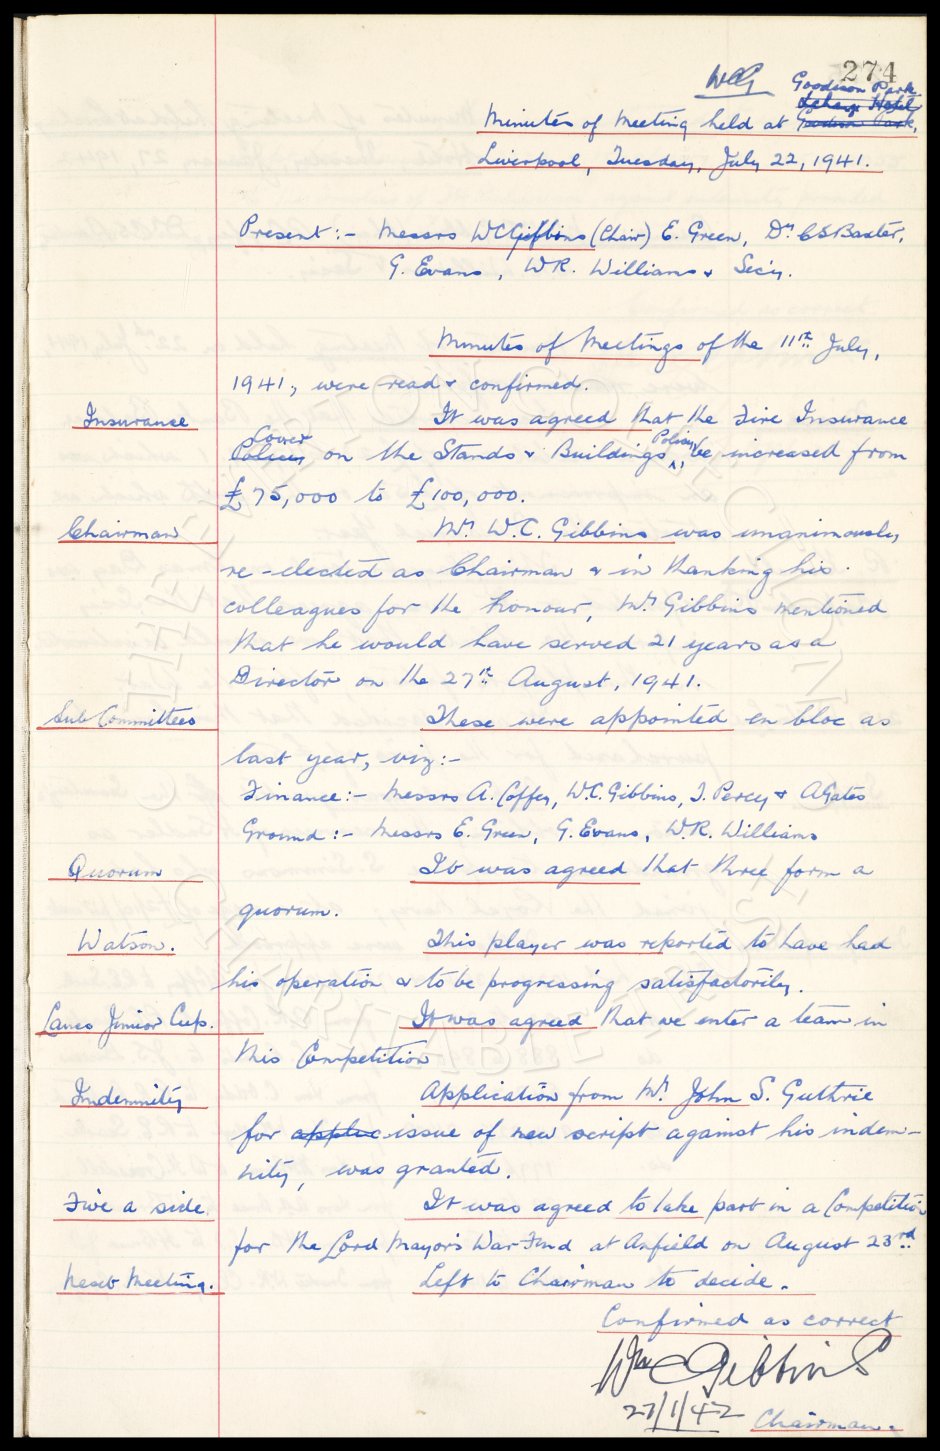 274
WCG Goodison Park
Lehay Hotel
Minutes of Meeting held at Goodison Park,
Liverpool, Tuesday, July 22, 1941.
Present :- Messrs WCGibbins (Chair) E. Green, Dr. CSBaxter,
G. Evans, WR. Williams & Sec'y.
Minutes of Meetings of the 11th July,
1941, were read & confirmed.
Insurance It was agreed that the Fire Insurance
Cover Policy
Policy on the Stands & Buildings be increased from
£75,000 to £100,000.
Chairman Mr. W.C. Gibbins was unanimously
re-elected as Chairman & in thanking his
colleagues for the honour, Mr. Gibbins mentioned
that he would have served 21 years as a
Director on the 27th August, 1941.
Sub Committees These were appointed en bloc as
last year, viz:-
Finance:- Messrs A. Coffey, W.C. Gibbins, J. Percy & A Gates
Ground :- Messrs E. Green, G. Evans, W.R. Williams
Quorum It was agreed that three form a
quorum.
Watson. This player was reported to have had
his operation & to be progressing satisfactorily.
Lancs Junior Cup. It was agreed that we enter a team in
this Competition
Indemnity Application from Mr. John S. Guthrie
for applic issue of new script against his indem-
nity, was granted.
Five a side. It was agreed to take part in a Competition
for the Lord Mayor's War Fund at Anfield on August 23rd.
Next Meeting. Left to Chairman to decide.
Confirmed as correct
Wm C Gibbins
27/1/42 Chairman.